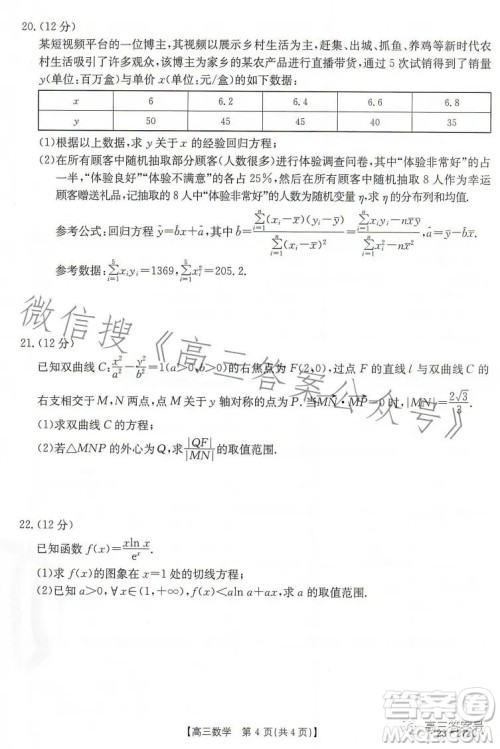 20.(12分)
某短视频平台的一位博主,其视频以展示乡村生活为主,赶集、出城、抓鱼、养鸡等新时代农
村生活吸引了许多观众,该博主为家乡的某农产品进行直播带货,通过5次试销得到了销量
y(单位:百万盒)与单价x(单位:元/盒)的如下数据:
x 6 6.2 6.4 6.6 6.8
y 50 45 45 40 35
(1)根据以上数据,求y关于x的经验回归方程;
(2)在所有顾客中随机抽取部分顾客(人数很多)进行体验调查问卷,其中“体验非常好”的占一
半,“体验良好”“体验不满意”的各占25%,然后在所有顾客中随机抽取8人作为幸运
顾客赠送礼品,记抽取的8人中“体验非常好”的人数为η,求η的分布列与数学期望.
参考公式:回归方程ŷ=b̂x+â,其中b̂=∑ᵢ₌₁ⁿ(xᵢ-x̄)(yᵢ-ȳ)/∑ᵢ₌₁ⁿ(xᵢ-x̄)²=(∑ᵢ₌₁ⁿxᵢyᵢ-nx̄ȳ)/(∑ᵢ₌₁ⁿxᵢ²-nx̄²),â=ȳ-b̂x̄.
参考数据:∑ᵢ₌₁⁵xᵢyᵢ=1369,∑ᵢ₌₁⁵xᵢ²=205.2.
21.(12分)
已知双曲线C:x²/a²-y²/b²=1(a>0,b>0)的右焦点为F(2,0),过点F的直线l与双曲线C的
右支相交于M,N两点,点M关于y轴对称的点为P.当MF·MP=0时,|MN|=2√3/3.
(1)求双曲线C的方程;
(2)若△MNP的外心为Q,求|QF|/|MN|的取值范围.
22.(12分)
已知函数f(x)=xln x/eˣ.
(1)求f(x)的图象在x=1处的切线方程;
(2)已知a>0,∀x∈(1,+∞),f(x)<aln a+a,求a的取值范围.
【高三数学 第4页(共4页)】
微信搜《高三答案公众号》
高三答案号
答案圈